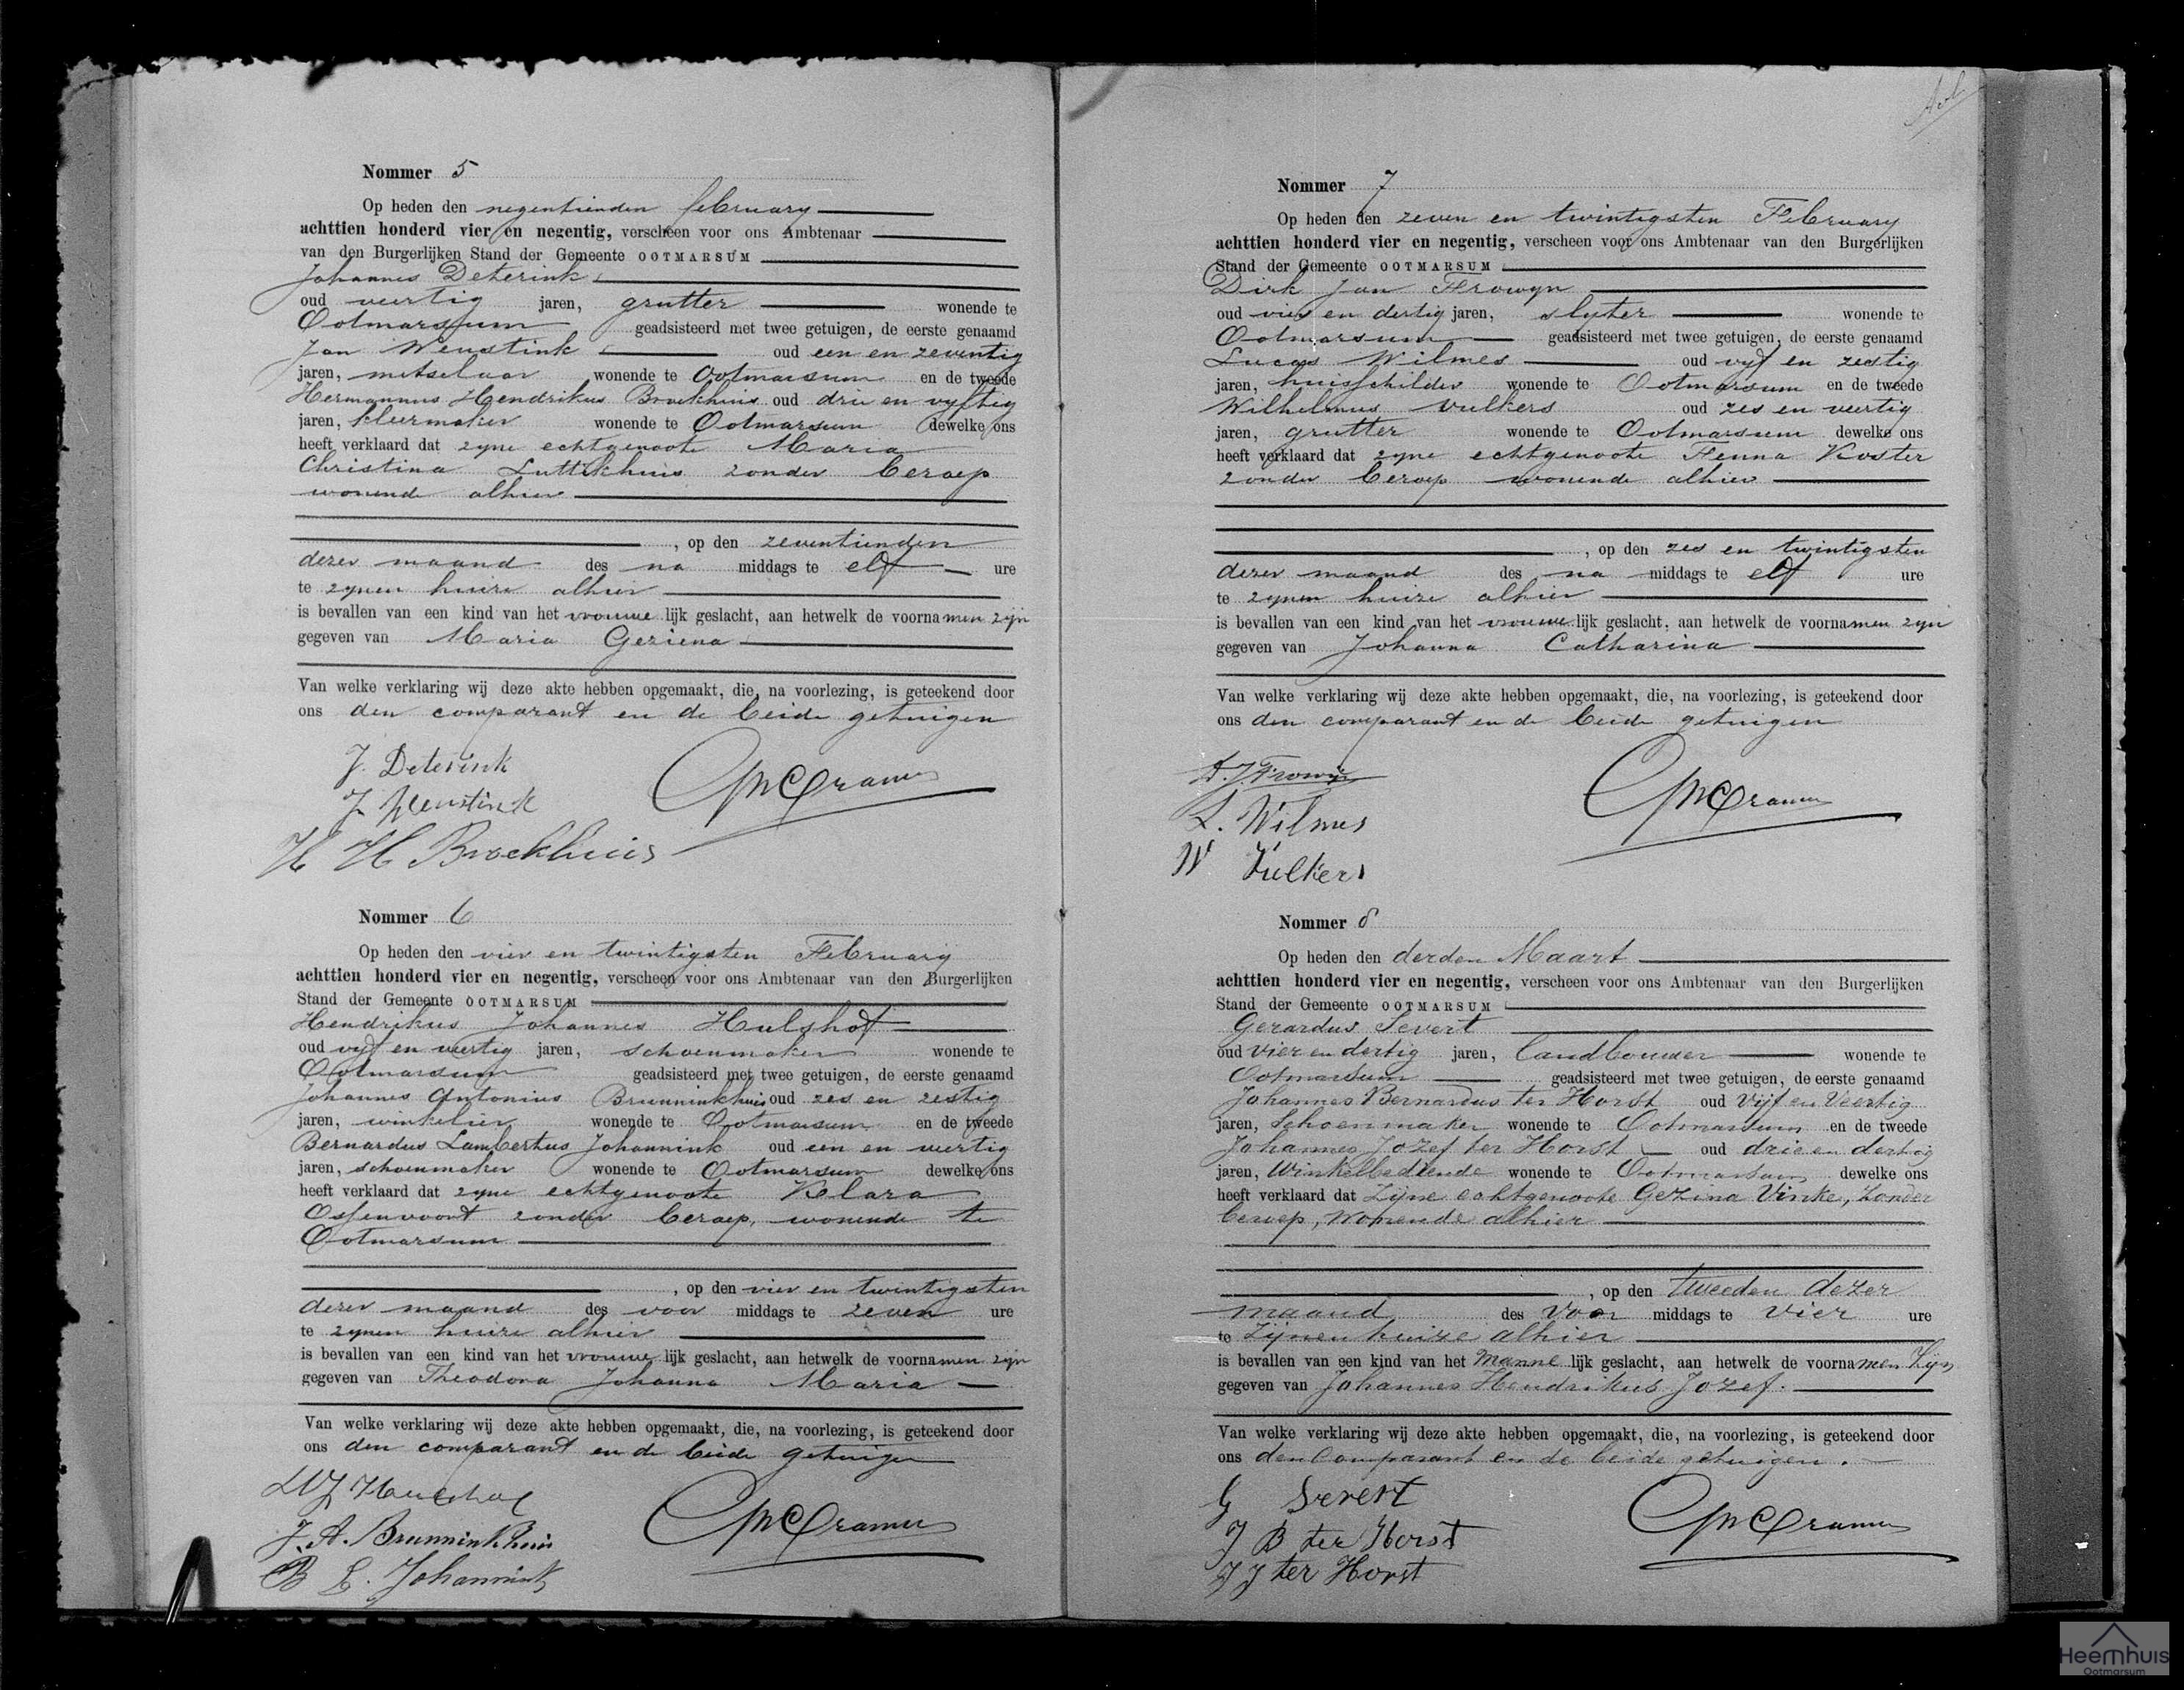 Nommer 5
Op heden den negentienden february
achttien honderd vier en negentig, verscheen voor ons Ambtenaar
van den Burgerlijken Stand der Gemeente OOTMARSUM
Johannes Deterink
oud veertig jaren, grutter wonende te
Ootmarsum geadsisteerd met twee getuigen, de eerste genaamd
Jan Weustink oud een en zeventig
jaren, metselaar wonende te Ootmarsum en de tweede
Hermannus Hendrikus Broekhuis oud drie en vyftig
jaren, kleermaker wonende te Ootmarsum dewelke ons
heeft verklaard dat zyne echtgenoote Maria
Christina Luttikhuis zonder beroep
wonende alhier
, op den zeventienden
dezer maand des na middags te elf ure
te zynen huize alhier
is bevallen van een kind van het vrouwelijk geslacht, aan hetwelk de voornamen zijn
gegeven van Maria Geziena
Van welke verklaring wij deze akte hebben opgemaakt, die, na voorlezing, is geteekend door
ons den comparant en de beide getuigen
J. Deterink
J. Weustink
H H Broekhuis
Cramer
Nommer 6
Op heden den vier en twintigsten February
achttien honderd vier en negentig, verscheen voor ons Ambtenaar van den Burgerlijken
Stand der Gemeente OOTMARSUM
Hendrikus Johannes Hulshof
oud vyf en veertig jaren, schoenmaker wonende te
Ootmarsum geadsisteerd met twee getuigen, de eerste genaamd
Johannes Antonius Brunninkhuis oud zes en zestig
jaren, winkelier wonende te Ootmarsum en de tweede
Bernardus Lambertus Johannink oud een en veertig
jaren, schoenmaker wonende te Ootmarsum dewelke ons
heeft verklaard dat zyne echtgenoote Klara
Ossenvoort zonder beroep, wonende te
Ootmarsum
, op den vier en twintigsten
dezer maand des voor middags te zeven ure
te zynen huize alhier
is bevallen van een kind van het vrouwelijk geslacht, aan hetwelk de voornamen zijn
gegeven van Theodora Johanna Maria
Van welke verklaring wij deze akte hebben opgemaakt, die, na voorlezing, is geteekend door
ons den comparant en de beide getuigen
J. A. Brunninkhuis
B L. Johannink
Cramer
Nommer 7
Op heden den zeven en twintigsten February
achttien honderd vier en negentig, verscheen voor ons Ambtenaar van den Burgerlijken
Stand der Gemeente OOTMARSUM
Dirk Jan Frowyn
oud vier en dertig jaren, slyter wonende te
Ootmarsum geadsisteerd met twee getuigen, de eerste genaamd
Lucas Wilmes oud vyf en zestig
jaren, huisschilder wonende te Ootmarsum en de tweede
Wilhelmus Vulkers oud zes en veertig
jaren, grutter wonende te Ootmarsum dewelke ons
heeft verklaard dat zyne echtgenoote Fenna Koster
zonder beroep wonende alhier
, op den zes en twintigsten
dezer maand des na middags te elf ure
te zynen huize alhier
is bevallen van een kind van het vrouwelijk geslacht, aan hetwelk de voornamen zyn
gegeven van Johanna Catharina
Van welke verklaring wij deze akte hebben opgemaakt, die, na voorlezing, is geteekend door
ons den comparant en de beide getuigen
D. J. Frowijn
L. Wilmes
W Vulkers
Cramer
Nommer 8
Op heden den derden Maart
achttien honderd vier en negentig, verscheen voor ons Ambtenaar van den Burgerlijken
Stand der Gemeente OOTMARSUM
Gerardus Severt
oud vier en dertig jaren, landbouwer wonende te
Ootmarsum geadsisteerd met twee getuigen, de eerste genaamd
Johannes Bernardus ter Horst oud Vijf en Veertig
jaren, Schoenmaker wonende te Ootmarsum en de tweede
Johannes Jozef ter Horst oud drie en dertig
jaren, Winkelbediende wonende te Ootmarsum dewelke ons
heeft verklaard dat Zijne echtgenoote Gezina Vinke, Zonder
beroep, Wonende alhier
, op den tweeden dezer
maand des Voor middags te Vier ure
te Zijnen huize alhier
is bevallen van een kind van het Mannelijk geslacht, aan hetwelk de voornamen Zijn
gegeven van Johannes Hendrikus Jozef.
Van welke verklaring wij deze akte hebben opgemaakt, die, na voorlezing, is geteekend door
ons den Comparant en de beide getuigen.
G Severt
J B ter Horst
J J ter Horst
Cramer
Heemhuis
Ootmarsum